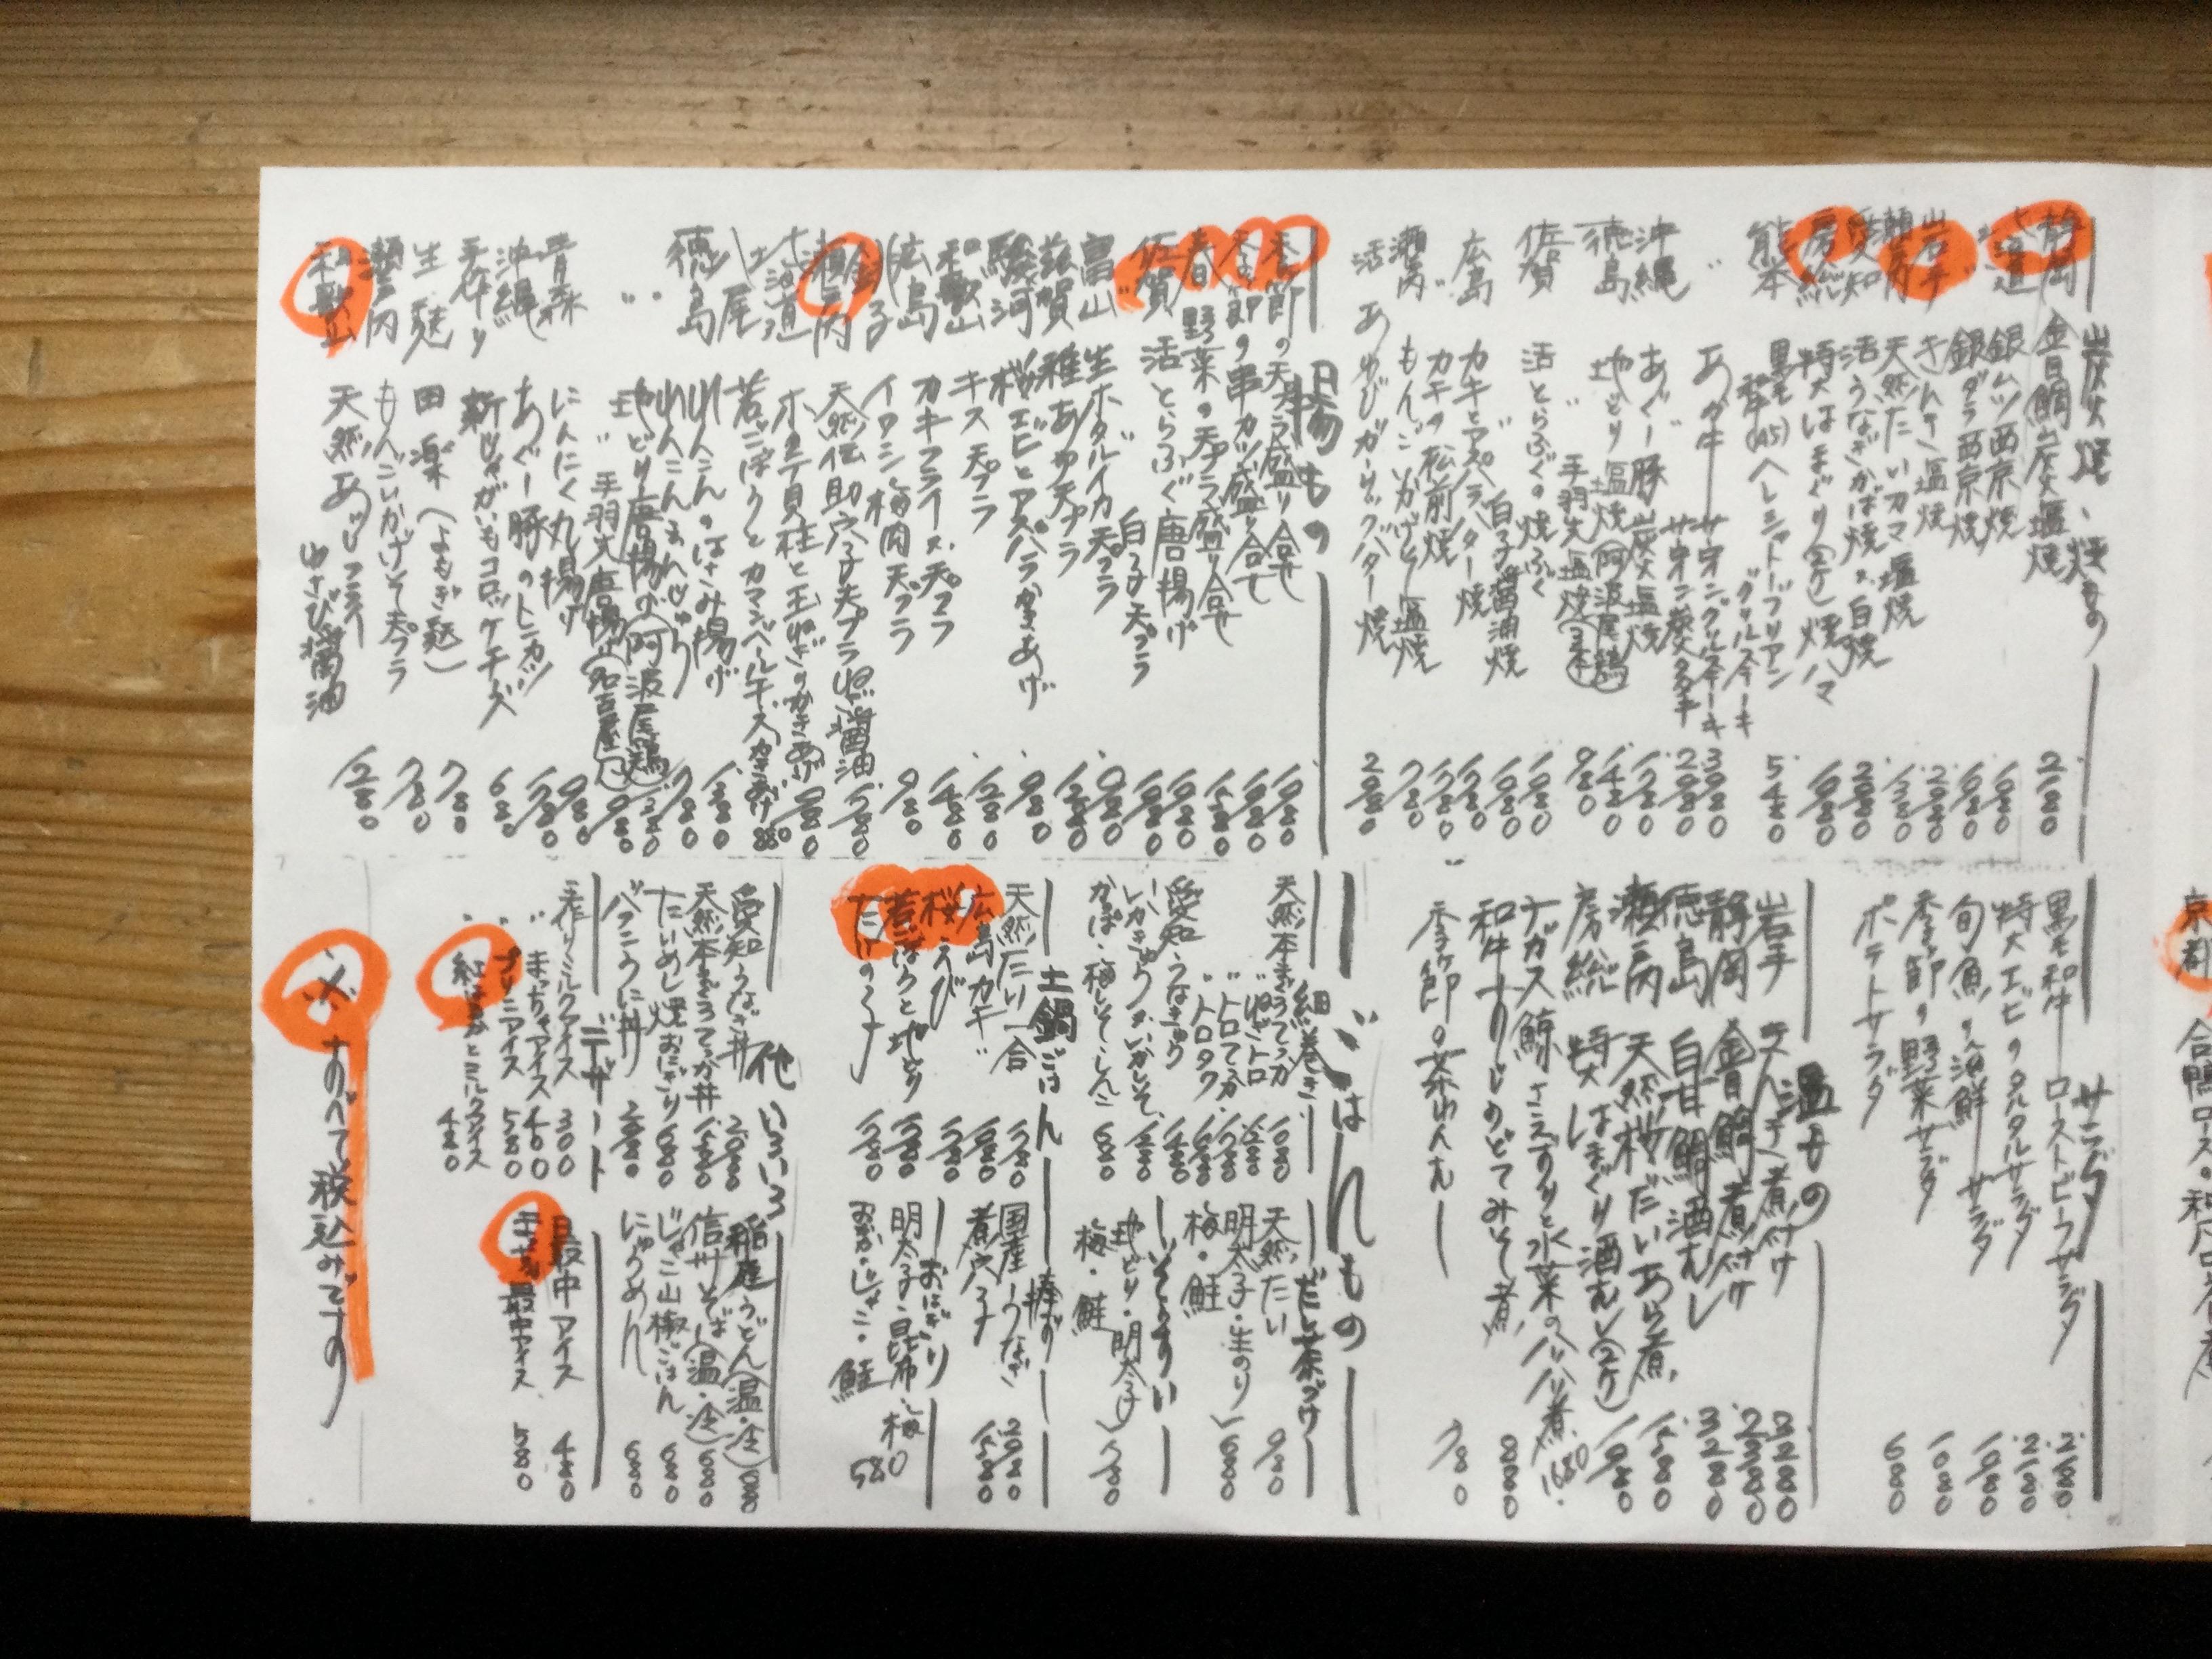 炭火焼、焼もの
静岡 金目鯛炭火塩焼 2180
銀ムツ西京焼 1680
銀ダラ西京焼 1680
岩手 きんき塩焼 2980
瀬戸内 天然たいカマ塩焼 1380
愛知 活うなぎかば焼き、白焼 2980
房総 特大はまぐり(2ケ)焼ハマ 1080
熊本 黒毛和牛(A5)ヘレシャトーブリアン 5480
あか牛 サーロイングリルステーキ 3980
2980
沖縄 あぐー豚炭火塩焼 1780
徳島 地どり塩焼(阿波尾鶏) 1480
〃 手羽先塩焼(3本) 980
佐賀 活とらふぐの焼ふぐ 1980
〃 白子醤油焼 1980
広島 カキとアスパラバター焼 1780
〃 カキの松前焼 1780
瀬戸内 もんごいかげそ塩焼 780
活あわびガーリックバター焼 2980
揚もの
季節の天ぷら盛り合せ 1980
季節の串カツ盛り合せ 1680
春野菜の天プラ盛り合せ 1280
佐賀 活とらふぐ唐揚げ 1980
〃 白子天プラ 1980
富山 生ホタルイカ天プラ 980
滋賀 稚あゆ天プラ 1280
駿河 桜エビとアスパラかきあげ 980
和歌山 キス天プラ 1280
広島 カキフライ・天プラ 1480
銚子 イワシ梅肉天プラ 980
瀬戸内 天然伝助穴子天プラわさび醤油 1580
北海道 ホタテ貝柱と玉ねぎのかきあげ 980
若ごぼうとカマンベールチーズかきあげ 880
れんこんのはさみ揚げ 1280
れんこんまんじゅう 780
徳島 地どり唐揚げ(阿波尾鶏) 1380
〃 手羽先唐揚げ(名古屋) 980
青森 にんにく丸揚げ 980
沖縄 あぐー豚のトンカツ 1780
手作り 新じゃがいもコロッケチーズ 680
生麩 田楽(よもぎ麩) 780
瀬戸内 もんごいかげそ天プラ 780
和歌山 天然あじフライ わさび醤油 1280
サラダ
黒毛和牛ローストビーフサラダ 2180
特大エビのタルタルサラダ 2180
旬魚の海鮮サラダ 1980
季節の野菜サラダ 1080
ポテトサラダ 680
温もの
岩手 きんき煮付け 3280
静岡 金目鯛煮付け 2380
徳島 白甘鯛酒むし 3280
瀬戸内 天然桜だいあら煮 1580
房総 特大はまぐり酒むし(2ケ) 1080
ナガス鯨さえずりと水菜のハリハリ煮 1680
和牛すじのどてみそ煮 880
季節の茶わんむし 780
ごはんもの
細巻き
天然本まぐろてっか 1080
〃 ねぎトロ 1280
〃 トロてっか 1780
〃 トロタク 1680
愛知 うなきゅう 1480
いかきゅう・いかしそ 1280
かっぱ・梅しそ・しんこ 680
だし茶づけ
天然たい 980
明太子・生のり
梅・鮭 680
いそぞうすい
地どり・明太子
梅・鮭 780
土鍋ごはん
天然たい一合 1780
広島カキ〃 1980
桜えび 1780
若ごぼうと地どり 1780
たけのこ 1780
棒ずし
国産うなぎ 2980
煮穴子 1580
おにぎり
明太子・昆布・梅
おかか・じゃこ・鮭 580
他 いろいろ
愛知うなぎ丼 2980
天然本まぐろてっか丼 1880
たいめし焼おにぎり 680
バフンうに丼 2980
稲庭うどん(温・冷) 680
信州そば(温・冷) 680
じゃこ山椒ごはん 680
にゅうめん 680
デザート
手作りミルクアイス 300
〃 まっちゃアイス 400
〃 プリンアイス 580
紅ほっぺとミルクアイス 480
最中アイス 480
最中アイス 580
※すべて税込みです
京都 合鴨ロースの